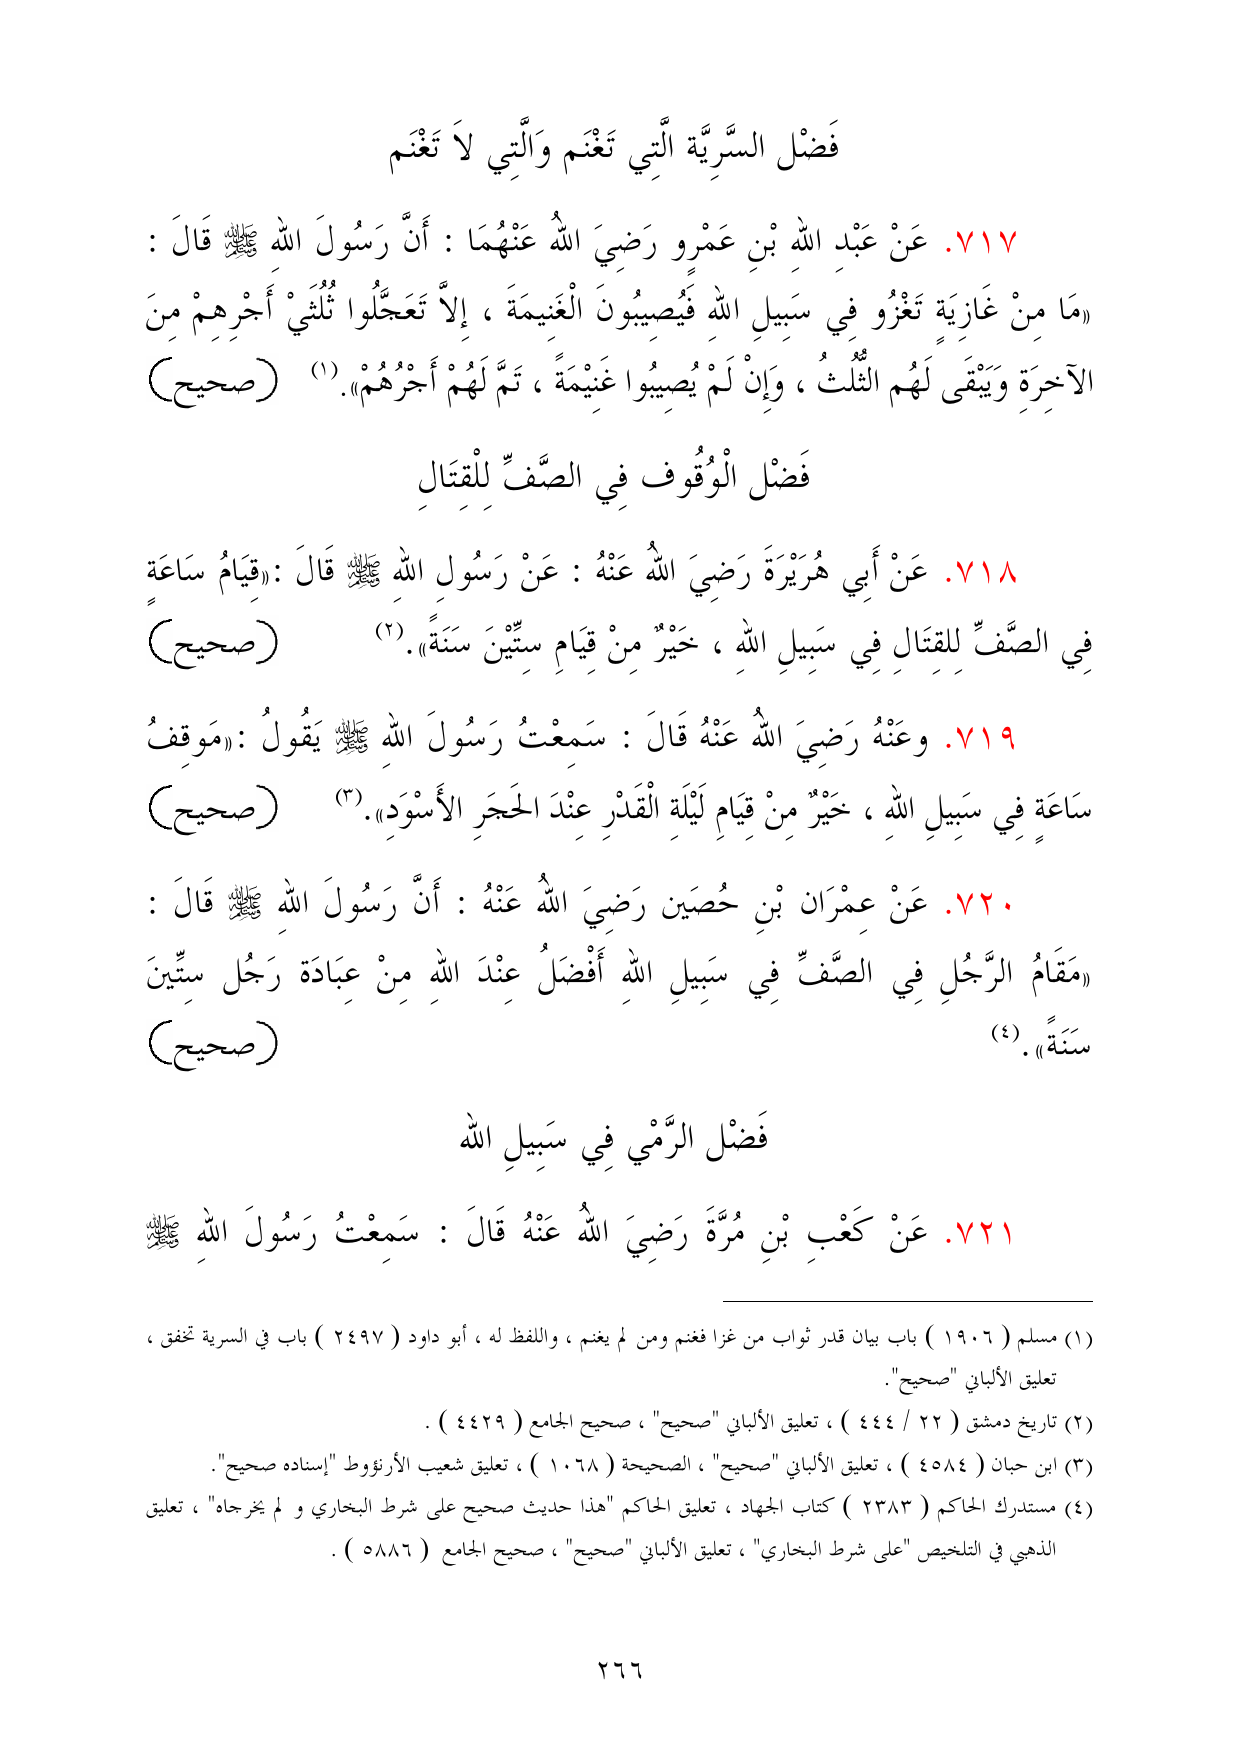 فَضْل السَّرِيَّة الَّتِي تَغْنَم وَالَّتِي لاَ تَغْنَم
٧١٧. عَنْ عَبْدِ اللهِ بْنِ عَمْرٍو رَضِيَ اللهُ عَنْهُمَا : أَنَّ رَسُولَ اللهِ ﷺ قَالَ :
«مَا مِنْ غَازِيَةٍ تَغْزُو فِي سَبِيلِ اللهِ فَيُصِيبُونَ الْغَنِيمَةَ ، إِلاَّ تَعَجَّلُوا ثُلُثَيْ أَجْرِهِمْ مِنَ
الآخِرَةِ وَيَبْقَى لَهُم الثُّلُثُ ، وَإِنْ لَمْ يُصِيبُوا غَنِيْمَةً ، تَمَّ لَهُمْ أَجْرُهُمْ». (١) (صحيح)
فَضْل الْوُقُوف فِي الصَّفِّ لِلْقِتَالِ
٧١٨. عَنْ أَبِي هُرَيْرَةَ رَضِيَ اللهُ عَنْهُ : عَنْ رَسُولِ اللهِ ﷺ قَالَ :«قِيَامُ سَاعَةٍ
فِي الصَّفِّ لِلقِتَالِ فِي سَبِيلِ اللهِ ، خَيْرٌ مِنْ قِيَامِ سِتِّيْنَ سَنَةً». (٢) (صحيح)
٧١٩. وعَنْهُ رَضِيَ اللهُ عَنْهُ قَالَ : سَمِعْتُ رَسُولَ اللهِ ﷺ يَقُولُ :«مَوقِفُ
سَاعَةٍ فِي سَبِيلِ اللهِ ، خَيْرٌ مِنْ قِيَامِ لَيْلَةِ الْقَدْرِ عِنْدَ الحَجَرِ الأَسْوَدِ». (٣) (صحيح)
٧٢٠. عَنْ عِمْرَان بْنِ حُصَين رَضِيَ اللهُ عَنْهُ : أَنَّ رَسُولَ اللهِ ﷺ قَالَ :
«مَقَامُ الرَّجُلِ فِي الصَّفِّ فِي سَبِيلِ اللهِ أَفْضَلُ عِنْدَ اللهِ مِنْ عِبَادَة رَجُل سِتِّينَ
سَنَةً». (٤) (صحيح)
فَضْل الرَّمْي فِي سَبِيلِ الله
٧٢١. عَنْ كَعْبِ بْنِ مُرَّةَ رَضِيَ اللهُ عَنْهُ قَالَ : سَمِعْتُ رَسُولَ اللهِ ﷺ
(١) مسلم ( ١٩٠٦ ) باب بيان قدر ثواب من غزا فغنم ومن لم يغنم ، واللفظ له ، أبو داود ( ٢٤٩٧ ) باب في السرية تخفق ،
تعليق الألباني "صحيح".
(٢) تاريخ دمشق ( ٢٢ / ٤٤٤ ) ، تعليق الألباني "صحيح" ، صحيح الجامع ( ٤٤٢٩ ) .
(٣) ابن حبان ( ٤٥٨٤ ) ، تعليق الألباني "صحيح" ، الصحيحة ( ١٠٦٨ ) ، تعليق شعيب الأرنؤوط "إسناده صحيح".
(٤) مستدرك الحاكم ( ٢٣٨٣ ) كتاب الجهاد ، تعليق الحاكم "هذا حديث صحيح على شرط البخاري و لم يخرجاه" ، تعليق
الذهبي في التلخيص "على شرط البخاري" ، تعليق الألباني "صحيح" ، صحيح الجامع ( ٥٨٨٦ ) .
٢٦٦